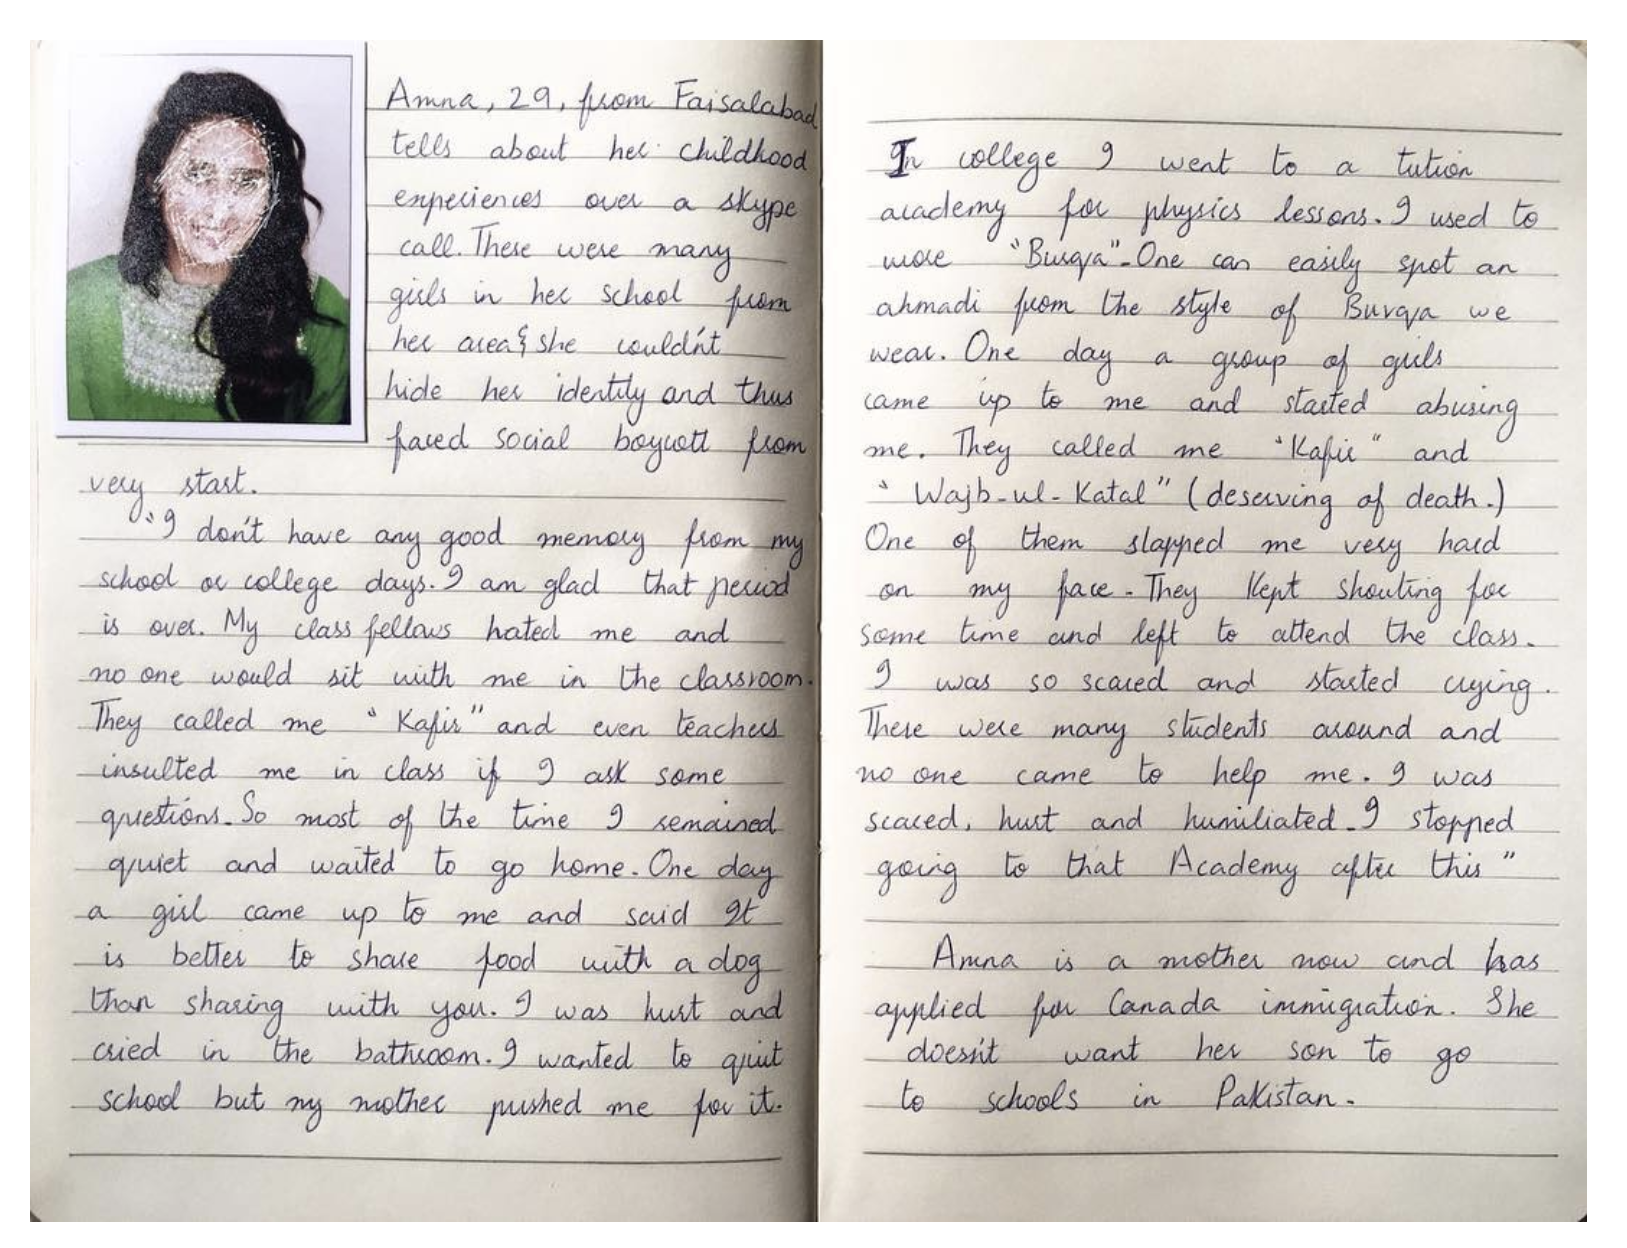 Amna, 29, from Faisalabad
tells about her childhood
experiences over a skype
call. There were many
girls in her school from
her area & she couldn't
hide her identity and thus
faced social boycott from
very start.
"I don't have any good memory from my
school or college days. I am glad that period
is over. My class fellows hated me and
no one would sit with me in the classroom.
They called me "Kafir" and even teachers
insulted me in class if I ask some
questions. So most of the time I remained
quiet and waited to go home. One day
a girl came up to me and said It
is better to share food with a dog
than sharing with you. I was hurt and
cried in the bathroom. I wanted to quit
school but my mother pushed me for it.
In college I went to a tution
academy for physics lessons. I used to
wore "Burqa". One can easily spot an
ahmadi from the style of Burqa we
wear. One day a group of girls
came up to me and started abusing
me. They called me "Kafir" and
"Wajb-ul-Katal" (deserving of death.)
One of them slapped me very hard
on my face. They kept shouting for
some time and left to attend the class.
I was so scared and started crying.
There were many students around and
no one came to help me. I was
scared, hurt and humiliated. I stopped
going to that Academy after this"
Amna is a mother now and has
applied for Canada immigration. She
doesn't want her son to go
to schools in Pakistan.